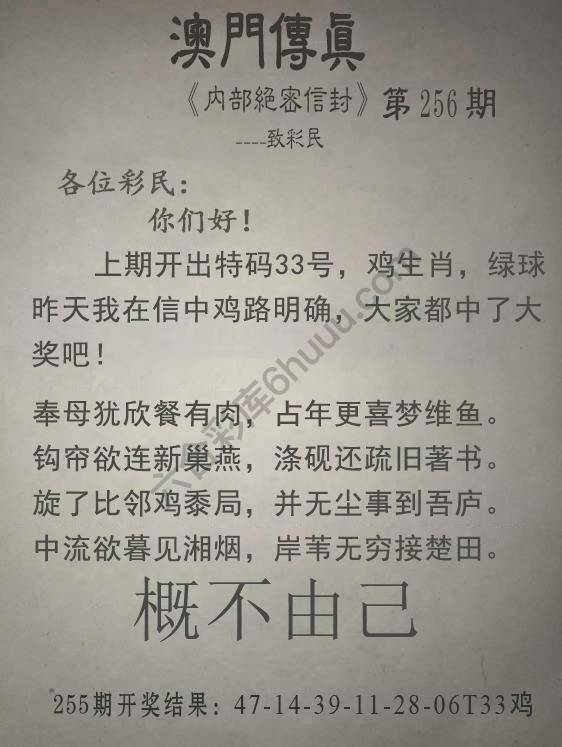 澳門傳真
《内部絕密信封》第256期
----致彩民
各位彩民：
你们好！
上期开出特码33号，鸡生肖，绿球
昨天我在信中鸡路明确，大家都中了大
奖吧！
奉母犹欣餐有肉，占年更喜梦维鱼。
钩帘欲连新巢燕，涤砚还疏旧著书。
旋了比邻鸡黍局，并无尘事到吾庐。
中流欲暮见湘烟，岸苇无穷接楚田。
概不由己
255期开奖结果：47-14-39-11-28-06T33鸡
六合彩库6huuu.com